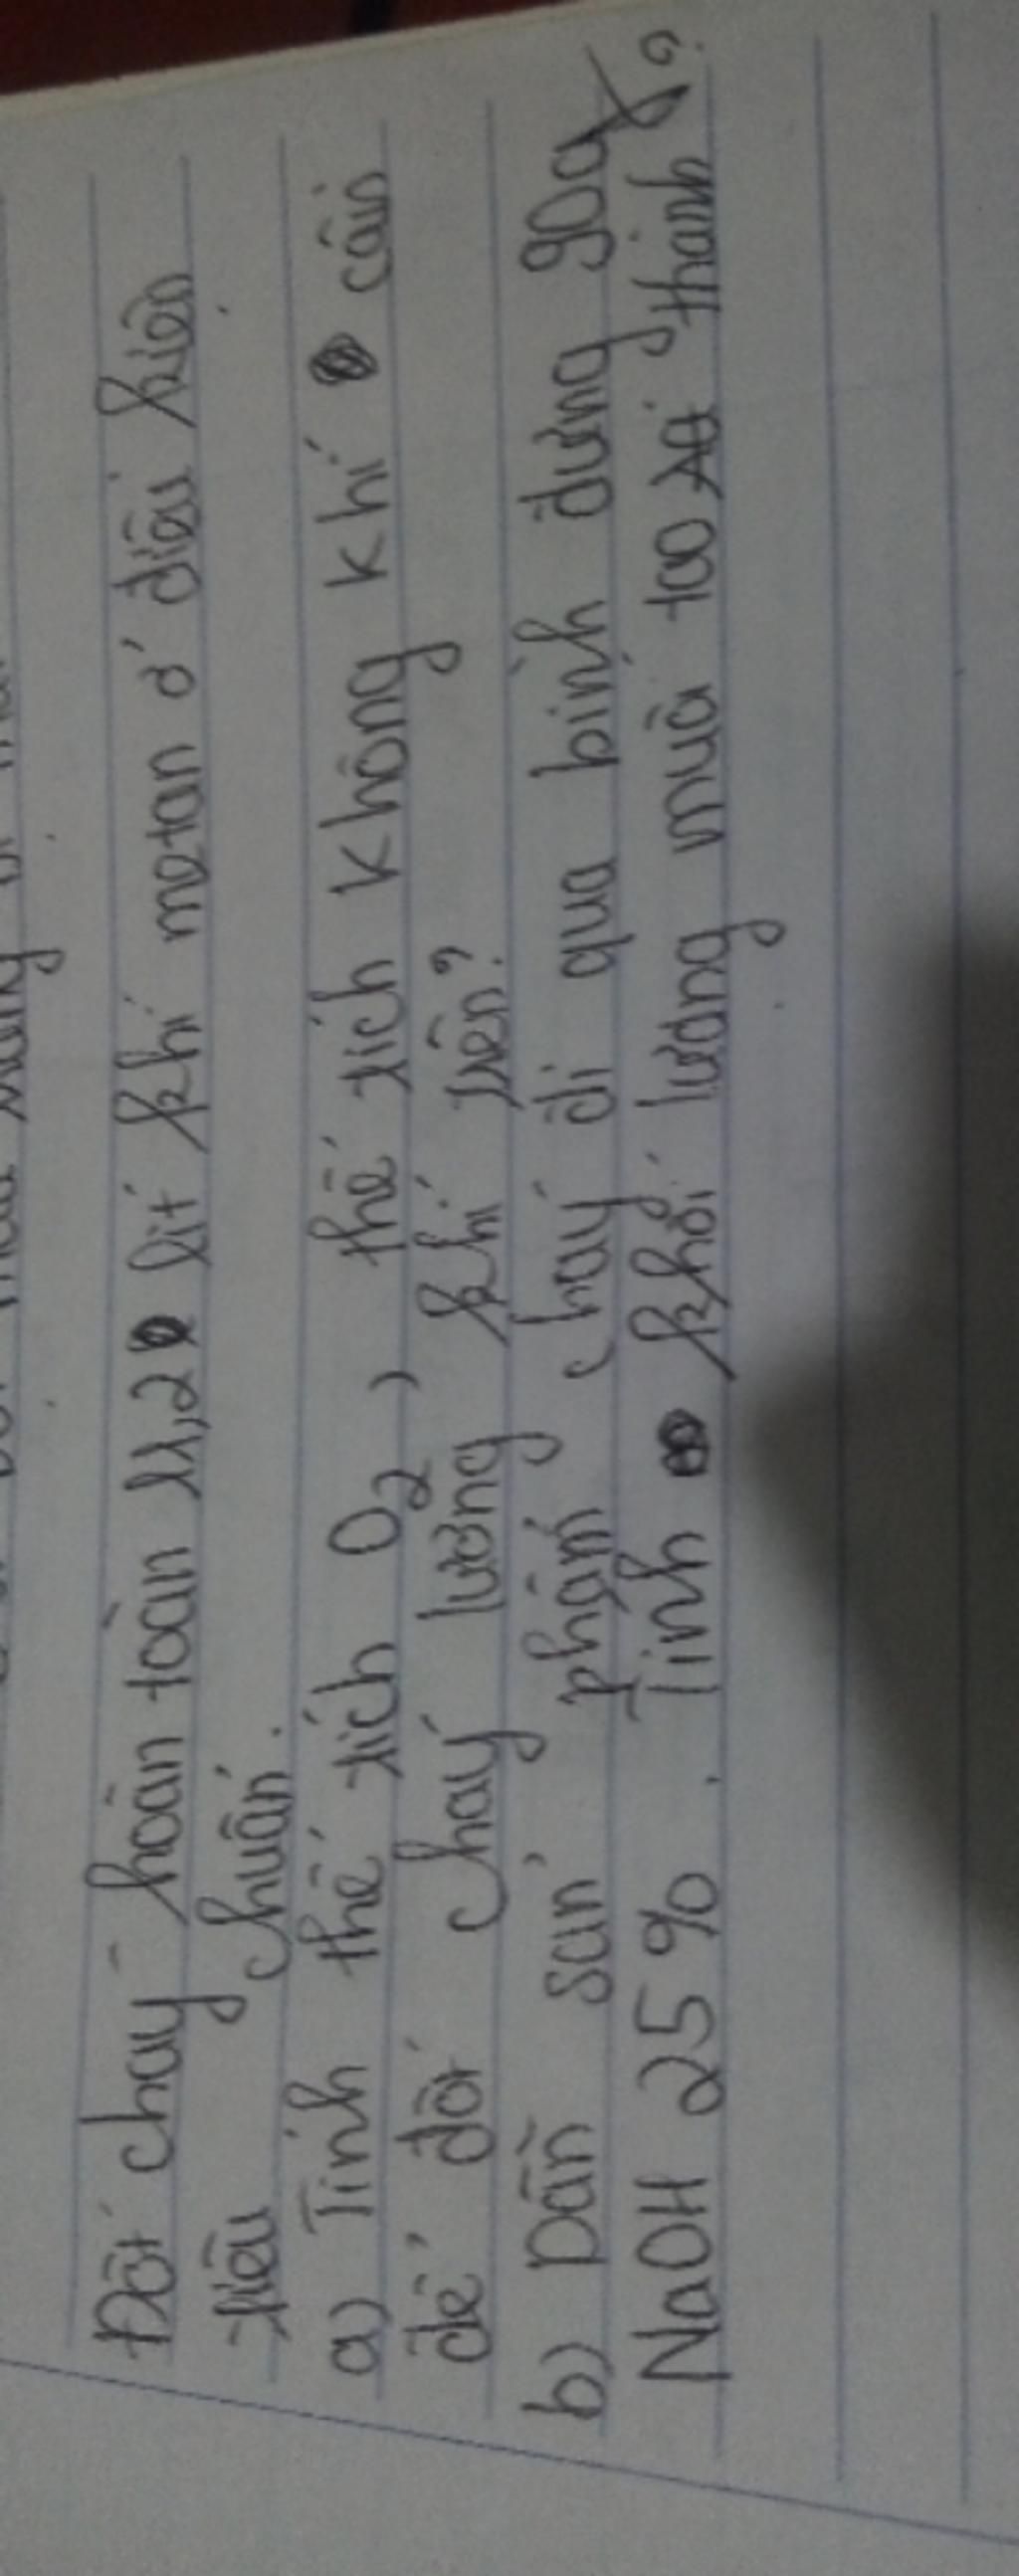 Đốt cháy hoàn toàn 11,2 lít khí metan ở điều kiện
tiêu chuẩn.
a) Tính thể tích O2, thể tích không khí cần
để đốt cháy lượng khí trên?
b) Dẫn sản phẩm cháy đi qua bình đựng 90g
NaOH 25%. Tính khối lượng muối tạo thành?